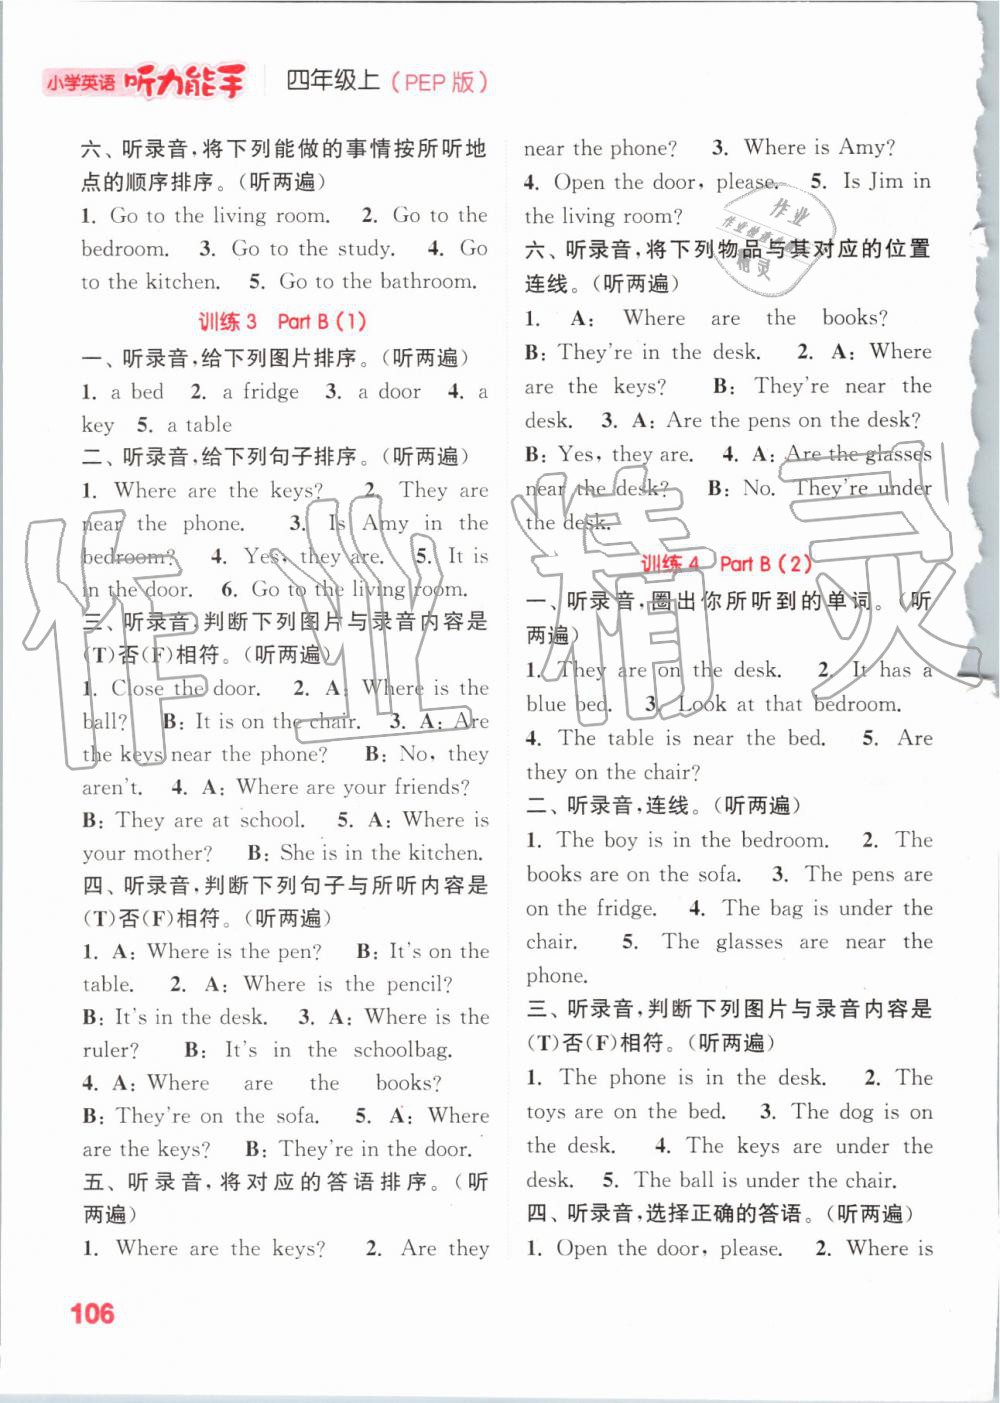 小学英语 听力能手 四年级上(PEP版)
六、听录音,将下列能做的事情按所听地
点的顺序排序。(听两遍)
1. Go to the living room. 2. Go to the
bedroom. 3. Go to the study. 4. Go
to the kitchen. 5. Go to the bathroom.
训练3 Part B(1)
一、听录音,给下列图片排序。(听两遍)
1. a bed 2. a fridge 3. a door 4. a
key 5. a table
二、听录音,给下列句子排序。(听两遍)
1. Where are the keys? 2. They are
near the phone. 3. Is Amy in the
bedroom? 4. Yes, they are. 5. It is
in the door. 6. Go to the living room.
三、听录音,判断下列图片与录音内容是
(T)否(F)相符。(听两遍)
1. Close the door. 2. A: Where is the
ball? B: It is on the chair. 3. A: Are
the keys near the phone? B: No, they
aren't. 4. A: Where are your friends?
B: They are at school. 5. A: Where is
your mother? B: She is in the kitchen.
四、听录音,判断下列句子与所听内容是
(T)否(F)相符。(听两遍)
1. A: Where is the pen? B: It's on the
table. 2. A: Where is the pencil?
B: It's in the desk. 3. A: Where is the
ruler? B: It's in the schoolbag.
4. A: Where are the books?
B: They're on the sofa. 5. A: Where
are the keys? B: They're in the door.
五、听录音,将对应的答语排序。(听
两遍)
1. Where are the keys? 2. Are they
near the phone? 3. Where is Amy?
4. Open the door, please. 5. Is Jim in
the living room?
六、听录音,将下列物品与其对应的位置
连线。(听两遍)
1. A: Where are the books?
B: They're in the desk. 2. A: Where
are the keys? B: They're near the
desk. 3. A: Are the pens on the desk?
B: Yes, they are. 4. A: Are the glasses
near the desk? B: No. They're under
the desk.
训练4 Part B(2)
一、听录音,圈出你所听到的单词。(听
两遍)
1. They are on the desk. 2. It has a
blue bed. 3. Look at that bedroom.
4. The table is near the bed. 5. Are
they on the chair?
二、听录音,连线。(听两遍)
1. The boy is in the bedroom. 2. The
books are on the sofa. 3. The pens are
on the fridge. 4. The bag is under the
chair. 5. The glasses are near the
phone.
三、听录音,判断下列图片与录音内容是
(T)否(F)相符。(听两遍)
1. The phone is in the desk. 2. The
toys are on the bed. 3. The dog is on
the desk. 4. The keys are under the
desk. 5. The ball is under the chair.
四、听录音,选择正确的答语。(听两遍)
1. Open the door, please. 2. Where is
106
作业精灵
作业
精灵